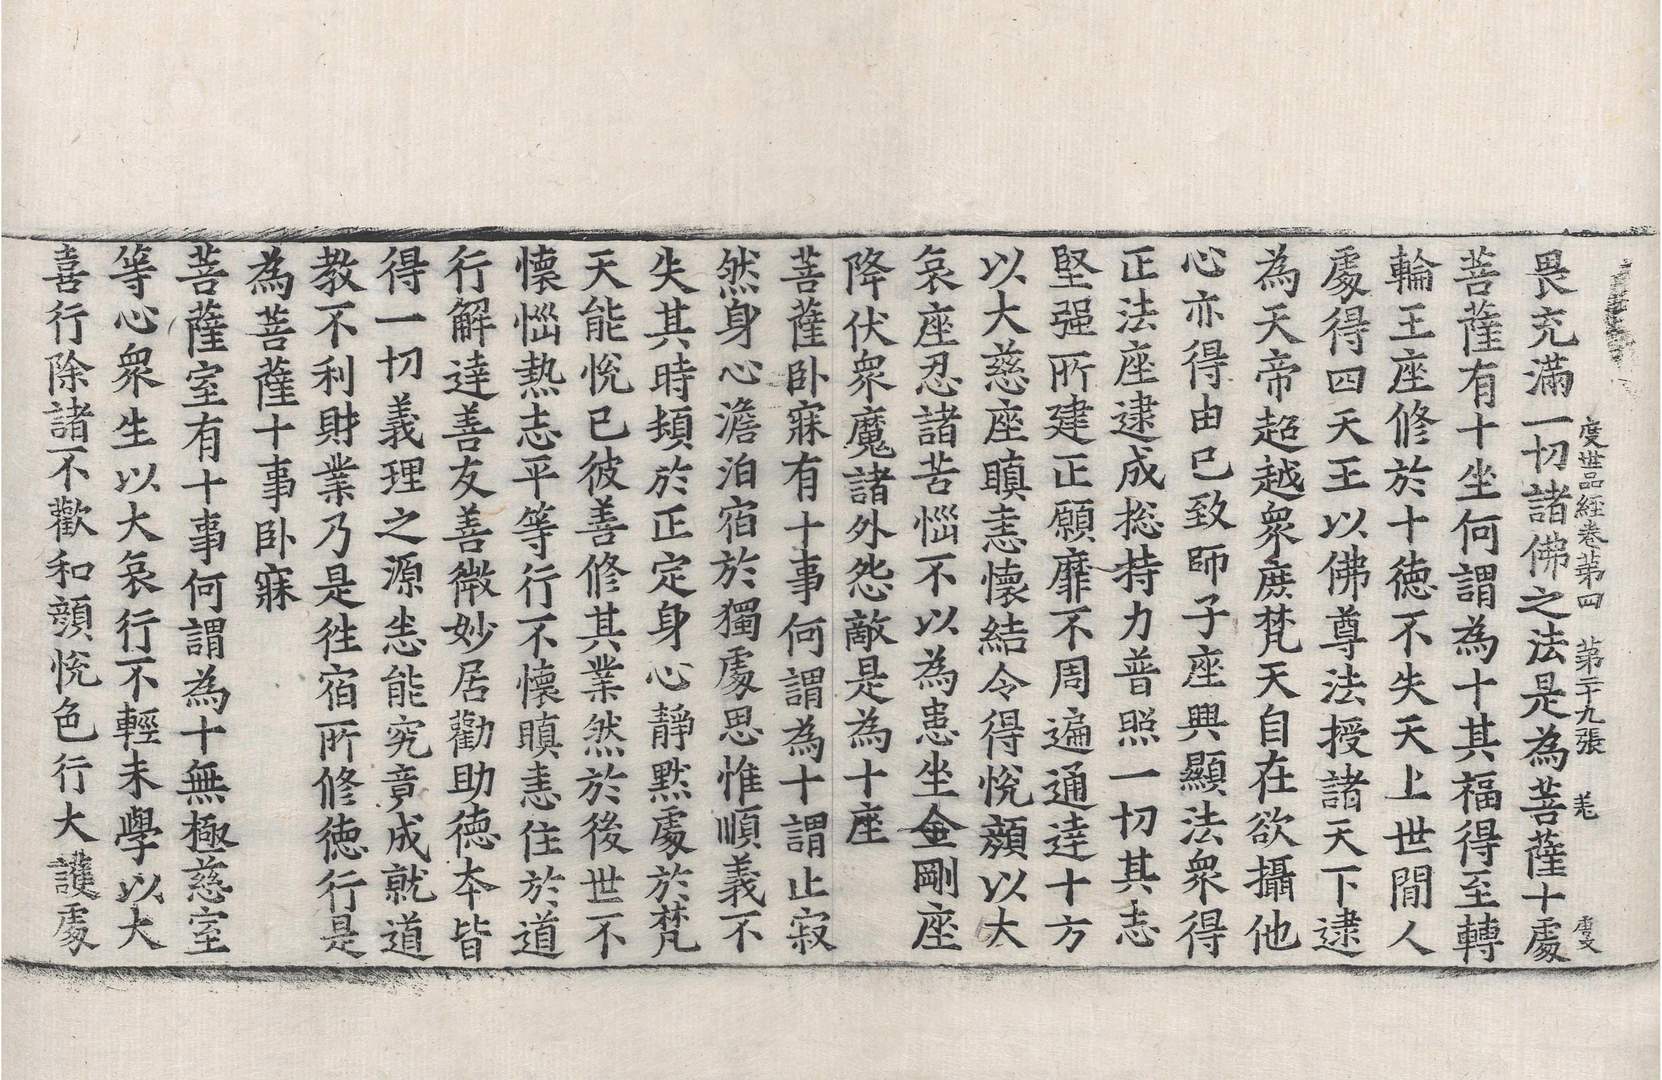 度世品經卷第四　第二十九張　羌　處文
畏充滿一切諸佛之法是為菩薩十處
菩薩有十坐何謂為十其福得至轉
輪王座修於十德不失天上世間人
處得四天王以佛尊法授諸天下逮
為天帝超越衆庶梵天自在欲攝他
心亦得由已致師子座興顯法衆得
正法座逮成捴持力普照一切其志
堅强所建正願靡不周遍通達十方
以大慈座瞋恚懷結令得悅顔以大
哀座忍諸苦惱不以為患坐金剛座
降伏衆魔諸外怨敵是為十座
菩薩卧寐有十事何謂為十謂止寂
然身心澹泊宿於獨處思惟順義不
失其時頻於正定身心靜默處於梵
天能悅已彼善修其業然於後世不
懷惱熱志平等行不懷瞋恚住於道
行解達善友善微妙居勸助德夲皆
得一切義理之源悉能究竟成就道
教不利財業乃是徃宿所修德行是
為菩薩十事卧寐
菩薩室有十事何謂為十無極慈室
等心衆生以大哀行不輕未學以大
喜行除諸不歡和顔悅色行大護處